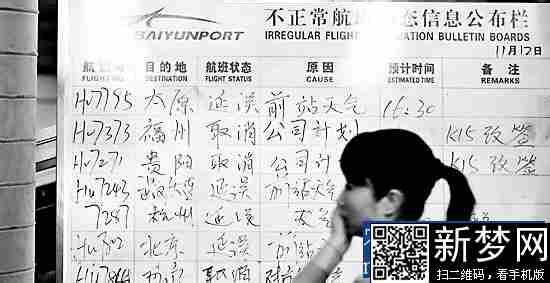 BAIYUNPORT
不正常航 态信息公布栏
IRREGULAR FLIGHT ATION BULLETIN BOARDS
11月17日
航班 目的地 航班状态 原因 预计时间 备注
FLIGHT DESTINATION FLIGHT STATUS CAUSE ESTIMATED TIME REMARKS
HU7795 太原 延误 前站天气 16:30
HU7373 福州 取消 公司计划 K15改签
HU7271 贵阳 取消 公司计 K15改签
HU7243 延误 前站天气
7287 杭州 延误 天气
北京 延误 前站
取消
新梦网
扫二维码，看手机版